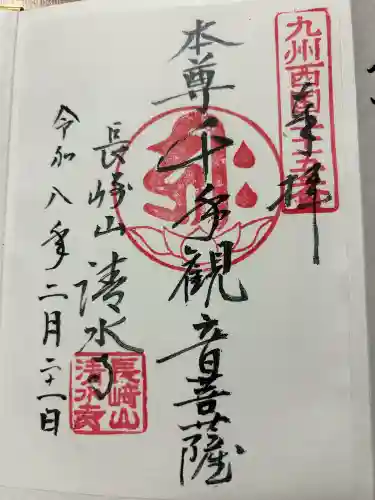 奉拝
本尊千手観音菩薩
長崎山清水寺
令和八年二月二十一日
長崎山清水寺